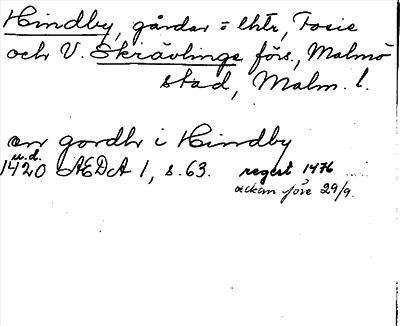 Hindby, gårdar o lhtr, Fosie
och V. Skrävlinge förs., Malmö
stad, Malm. l.
en gordh i Hindby
u.d.
1420 AEDA 1, s. 63. regest 1476
före 29/9.